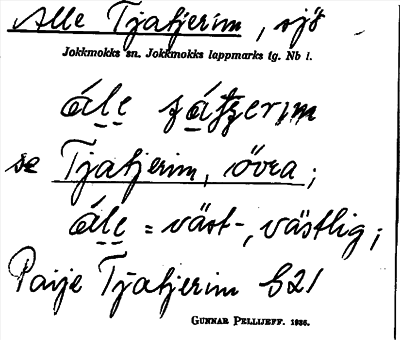 Alle Tjatjerim, sjö
Jokkmokks sn. Jokkmokks lappmarks tg. Nb l.
ále
se Tjatjerim, övra;
ále = väst-, västlig;
Paije Tjatjerim S21
GUNNAR PELLIJEFF. 1936.